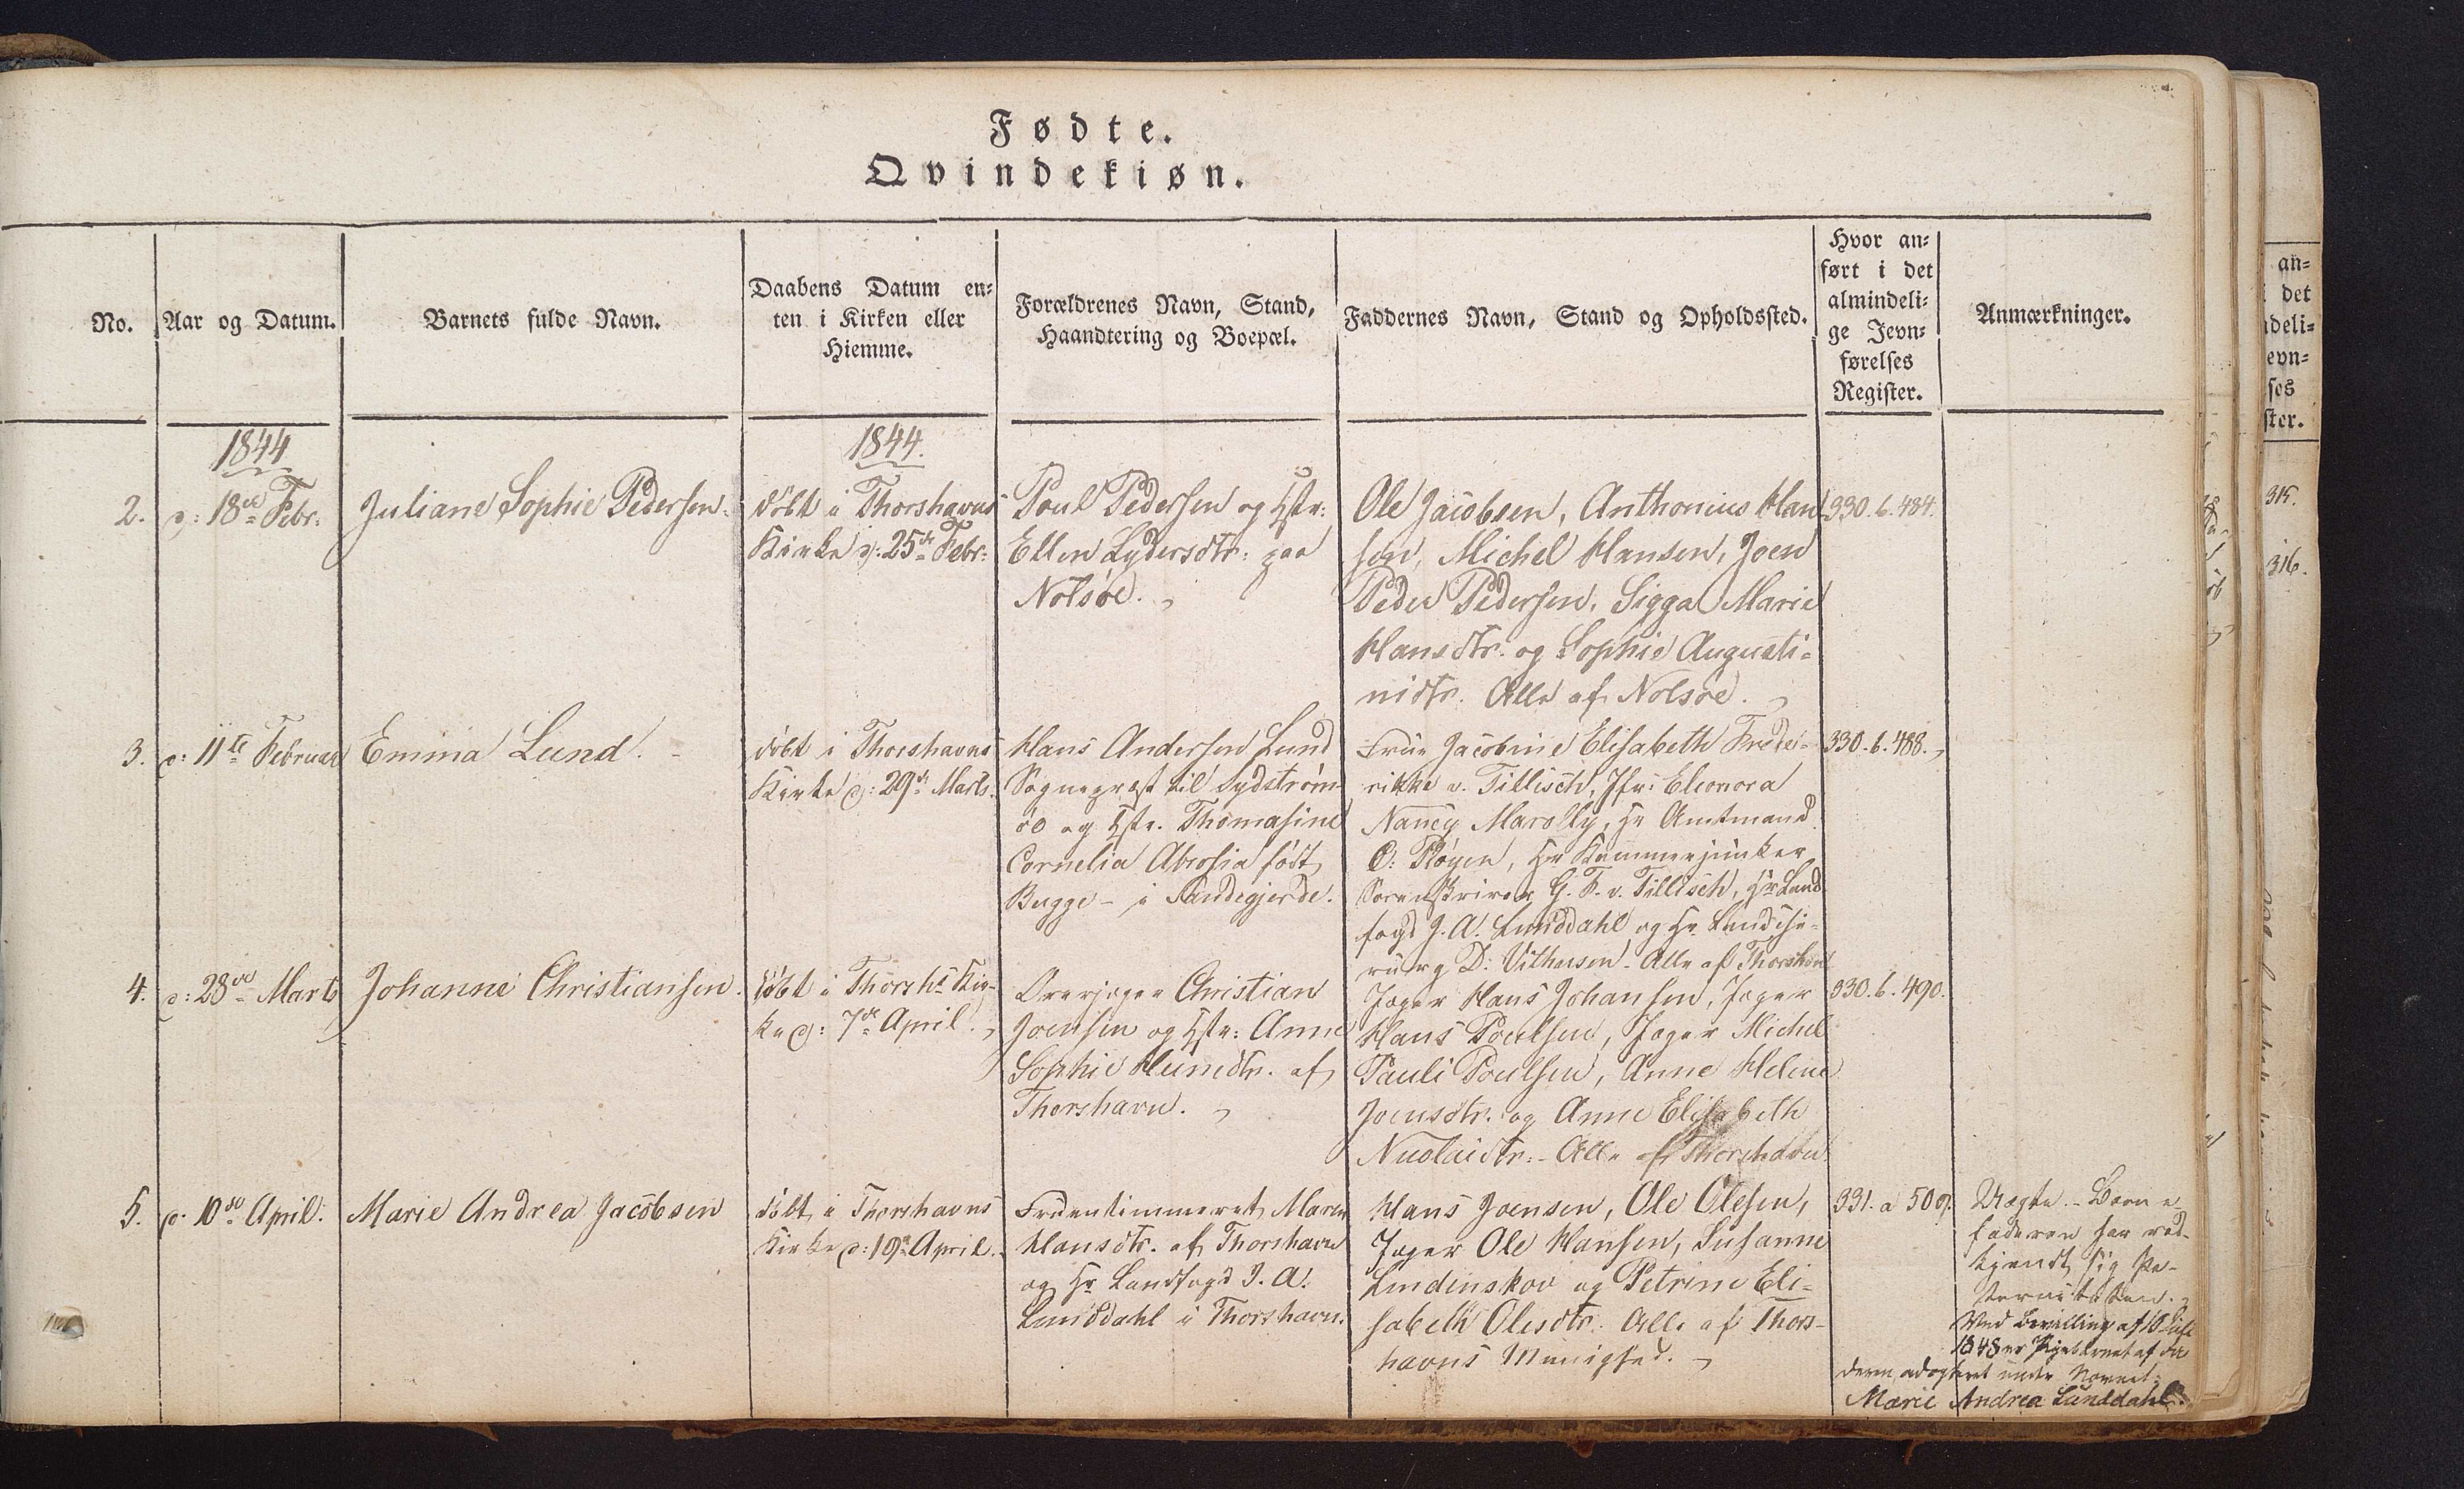 Fødte.
Qvindekiøn.
No.
Aar og Datum.
Barnets fulde Navn.
Daabens Datum en-
ten i Kirken eller
Hiemme.
Forældrenes Navn, Stand,
Haandtering og Boepæl.
Faddernes Navn, Stand og Opholdssted.
Hvor an-
ført i det
almindeli-
ge Jevn-
førelses
Register.
Anmærkninger.
1844
1844.
2.
d: 18de Febr:
Juliane Sophie Pedersen.
døbt i Thorshavns
Kirke d: 25de Febr:
Poul Pedersen og Hstr:
Ellen Lydersdtr: paa
Nolsöe.
Ole Jacobsen, Anthonius Han-
sen, Michel Hansen, Joen
Peder Pedersen, Sigga Marie
Hansdtr. og Sophie Augusti-
nidtr. Alle af Nolsöe.
330. b. 484.
3.
d: 11te Februar
Emma Lund.
døbt i Thorshavns
Kirke d: 29de Marts.
Hans Andersen Lund
Sognepræst til Sydstrøm-
öe og Hstr. Thomasine
Cornelia født
Bugge - i Sandegjerde.
Frue Jacobine Elisabeth Frede-
rikke v. Tillisch, Jfr: Eleonora
Nancy Marolly, Hr Amtmand
C: Pløyen, Hr Kammerjunker
Sorenskriver G. F. v. Tillisch, Hr Land-
foged J. A. Lunddahl og Hr Landchi-
rurg D: - Alle af Thorshavn
330. b. 488.
4.
d: 28de Marts
Johanne Christiansen.
døbt i Thorshs Kir-
ke d: 7de April.
Overjæger Christian
Joensen og Hstr: Anne
Sophie af
Thorshavn.
Jæger Hans Johansen, Jæger
Hans Poulsen, Jæger Michel
Pauli Poulsen, Anne Helene
Joensdtr. og Anne Elisabeth
Nicolaidtr: - Alle af Thorshavn
330. b. 490.
5.
d. 10de April.
Marie Andrea Jacobsen
døbt i Thorshavns
Kirke d: 19de April.
Fruentimmeret Maren
Hansdtr. af Thorshavn
og Hr Landfoged J. A.
Lunddahl i Thorshavn.
Hans Joensen, Ole Olesen,
Jæger Ole Hansen, Susanne
Lindenskov og Petrine Eli-
sabeth Olesdtr. Alle af Thors-
havns Menighed.
331. a 509.
Uægte. - Barne-
faderen har ved-
kjendt sig Pa-
terniteten.
Ved Bevilling af 10 Juli
1848 er Pigebarnet af Fa-
deren adopteret under Navnet:
Marie Andrea Lunddahl.
an-
i det
ndeli-
evn-
ses
ster.
315.
316.